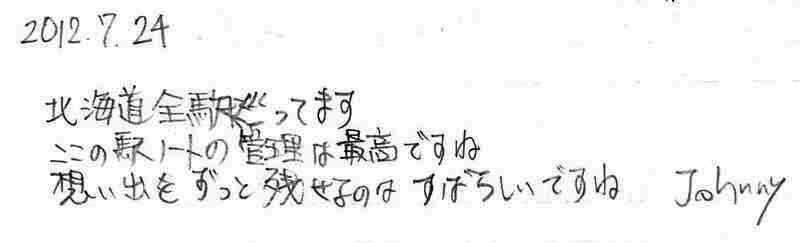 2012.7.24
北海道全駅ぐってます
ここの駅ノートの管理は最高ですね
想い出をずっと残せるのはすばらしいですね Johnny